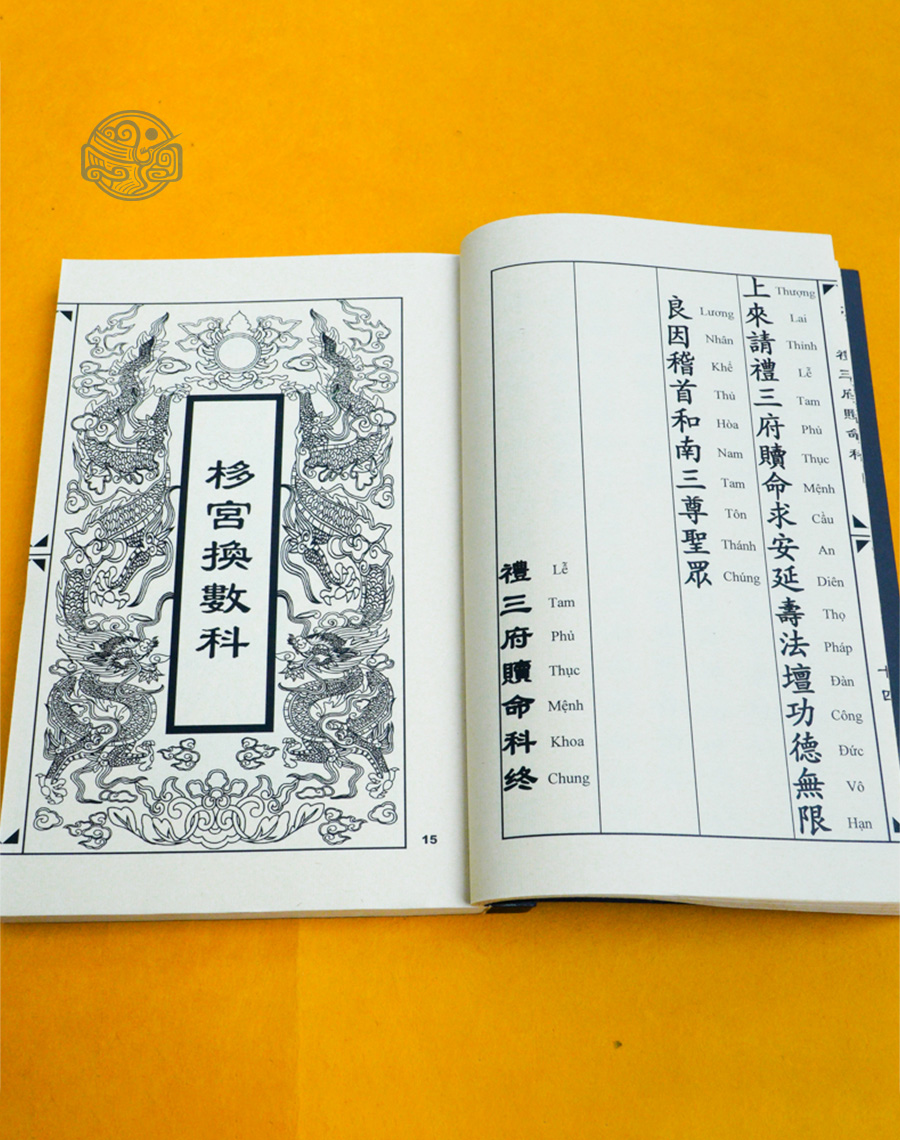 禮三府贖命科
十四
上來請禮三府贖命求安延壽法壇功德無限
Thượng Lai Thỉnh Lễ Tam Phủ Thục Mệnh Cầu An Diên Thọ Pháp Đàn Công Đức Vô Hạn
良因稽首和南三尊聖眾
Lương Nhân Khể Thủ Hòa Nam Tam Tôn Thánh Chúng
禮三府贖命科终
Lễ Tam Phủ Thục Mệnh Khoa Chung
移宮換數科
15